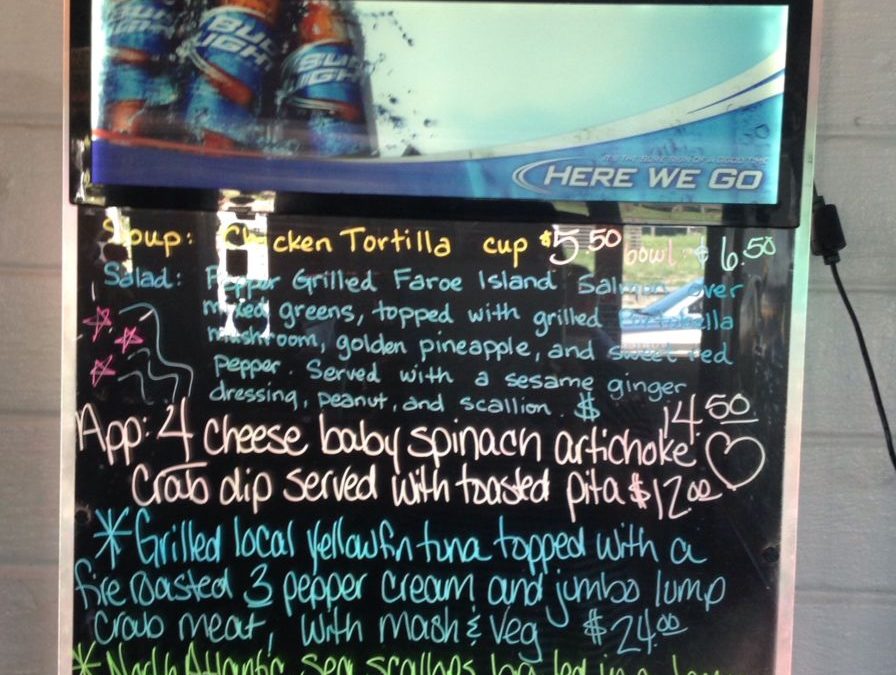 BUD LIGHT
BUD LIGHT
HERE WE GO
Soup: Chicken Tortilla cup $5.50 bowl $6.50
Salad: Pepper Grilled Faroe Island Salmon over
mixed greens, topped with grilled Portabella
mushroom, golden pineapple, and sweet red
pepper. Served with a sesame ginger
dressing, peanut, and scallion. $14.50
App: 4 cheese baby spinach artichoke
Crab dip served with toasted pita $12.00
*Grilled local yellowfin tuna topped with a
fire roasted 3 pepper cream and jumbo lump
Crab meat, with mash & veg $24.00
*North Atlantic Sea scallops